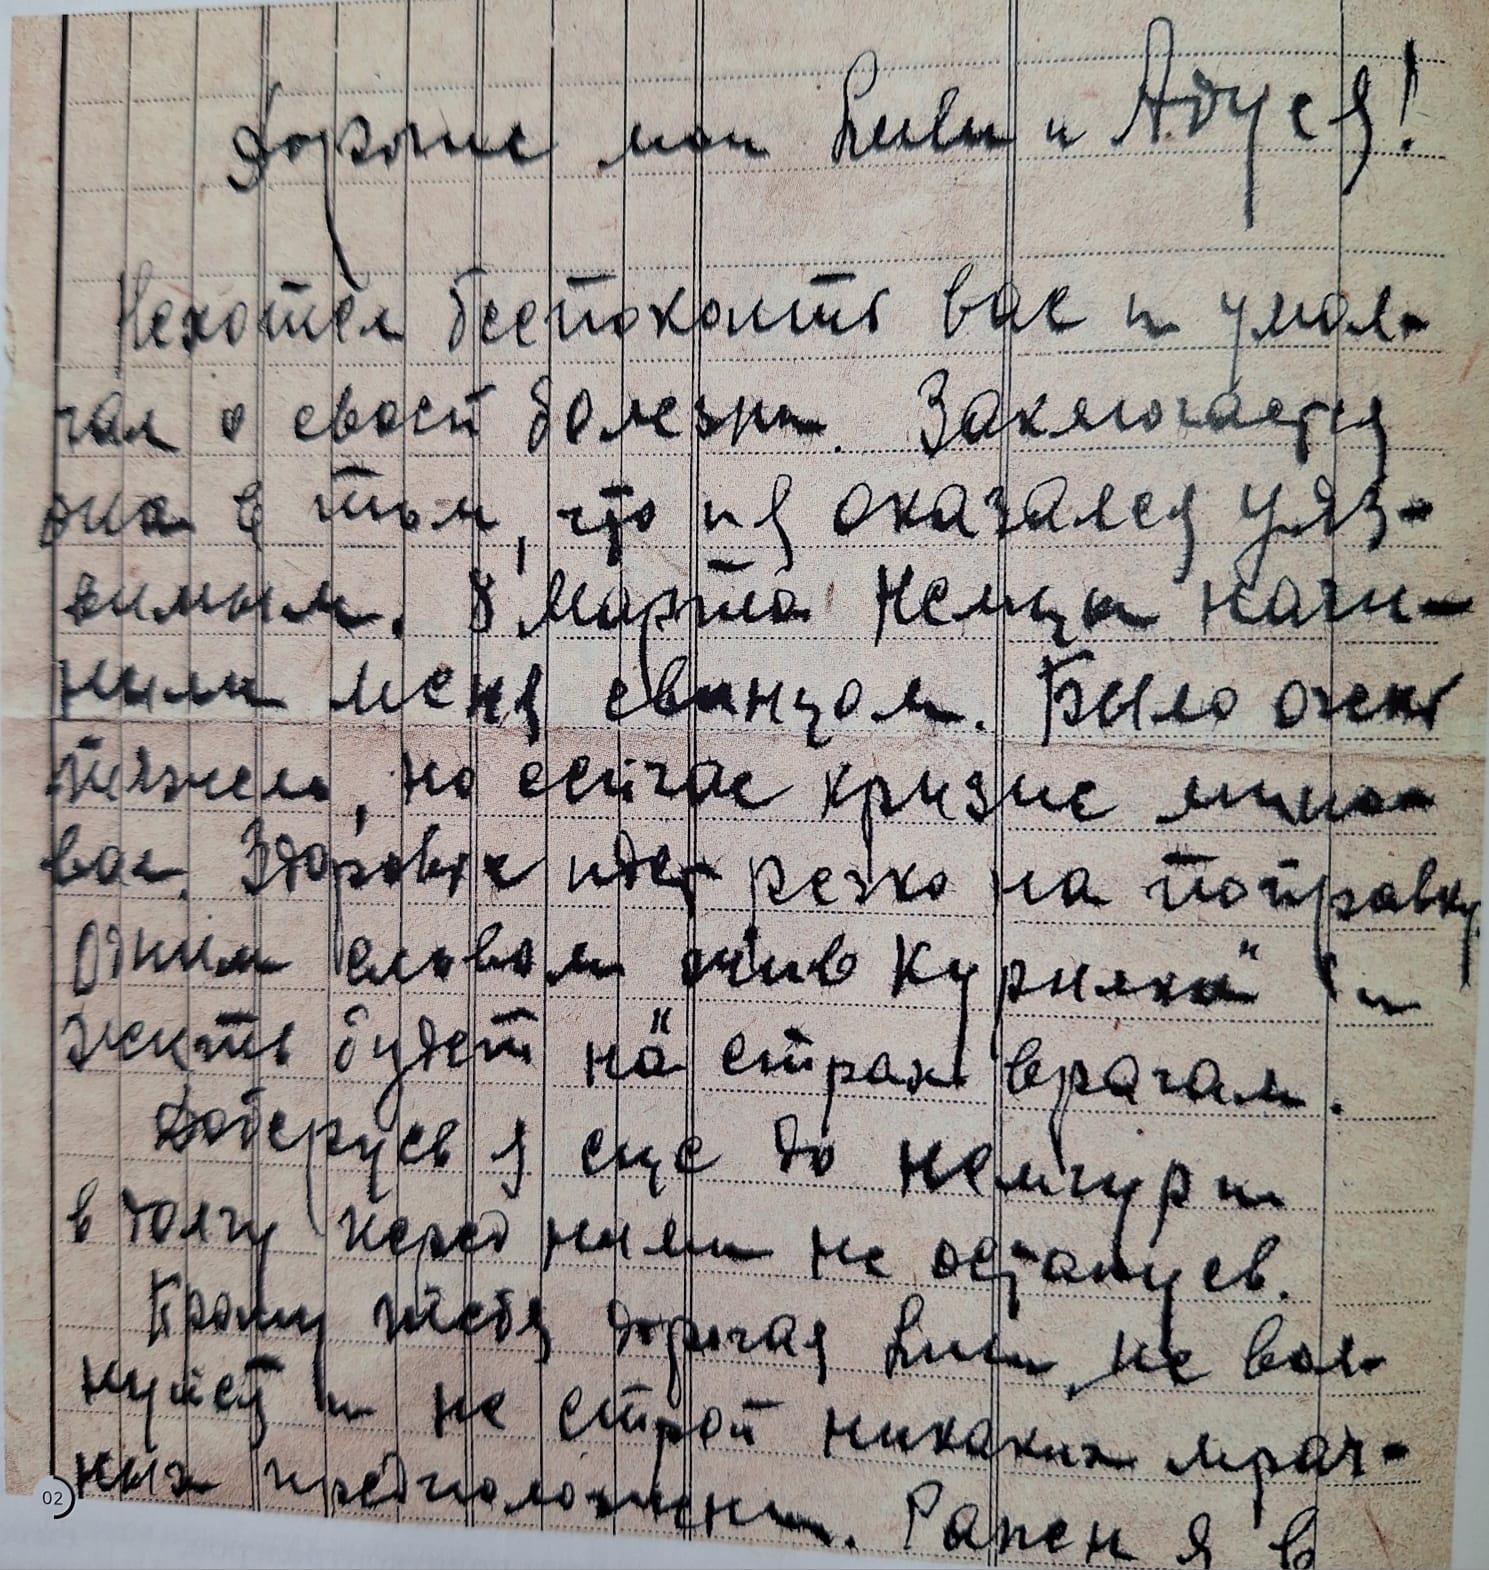 Дорогие мои Биби и Адуся!
Нехотел беспокоить вас и умол-
чал о своей болезни. Заключается
она в том, что и я оказался уяз-
вимым. 8 марта немцы начи-
нили меня свинцом. Было очень
тяжело, но сейчас кризис мино-
вал. Здоровье идет резко на поправку.
Одним словом жив Курилка" и
жить будет на" страх врагам.
Доберусь я еще до немчуры и
в долгу перед ними не останусь.
Прошу тебя дорогая Биби, не вол-
нуйся и не строй никаких мрач-
ных предположени. Ранен я в
02